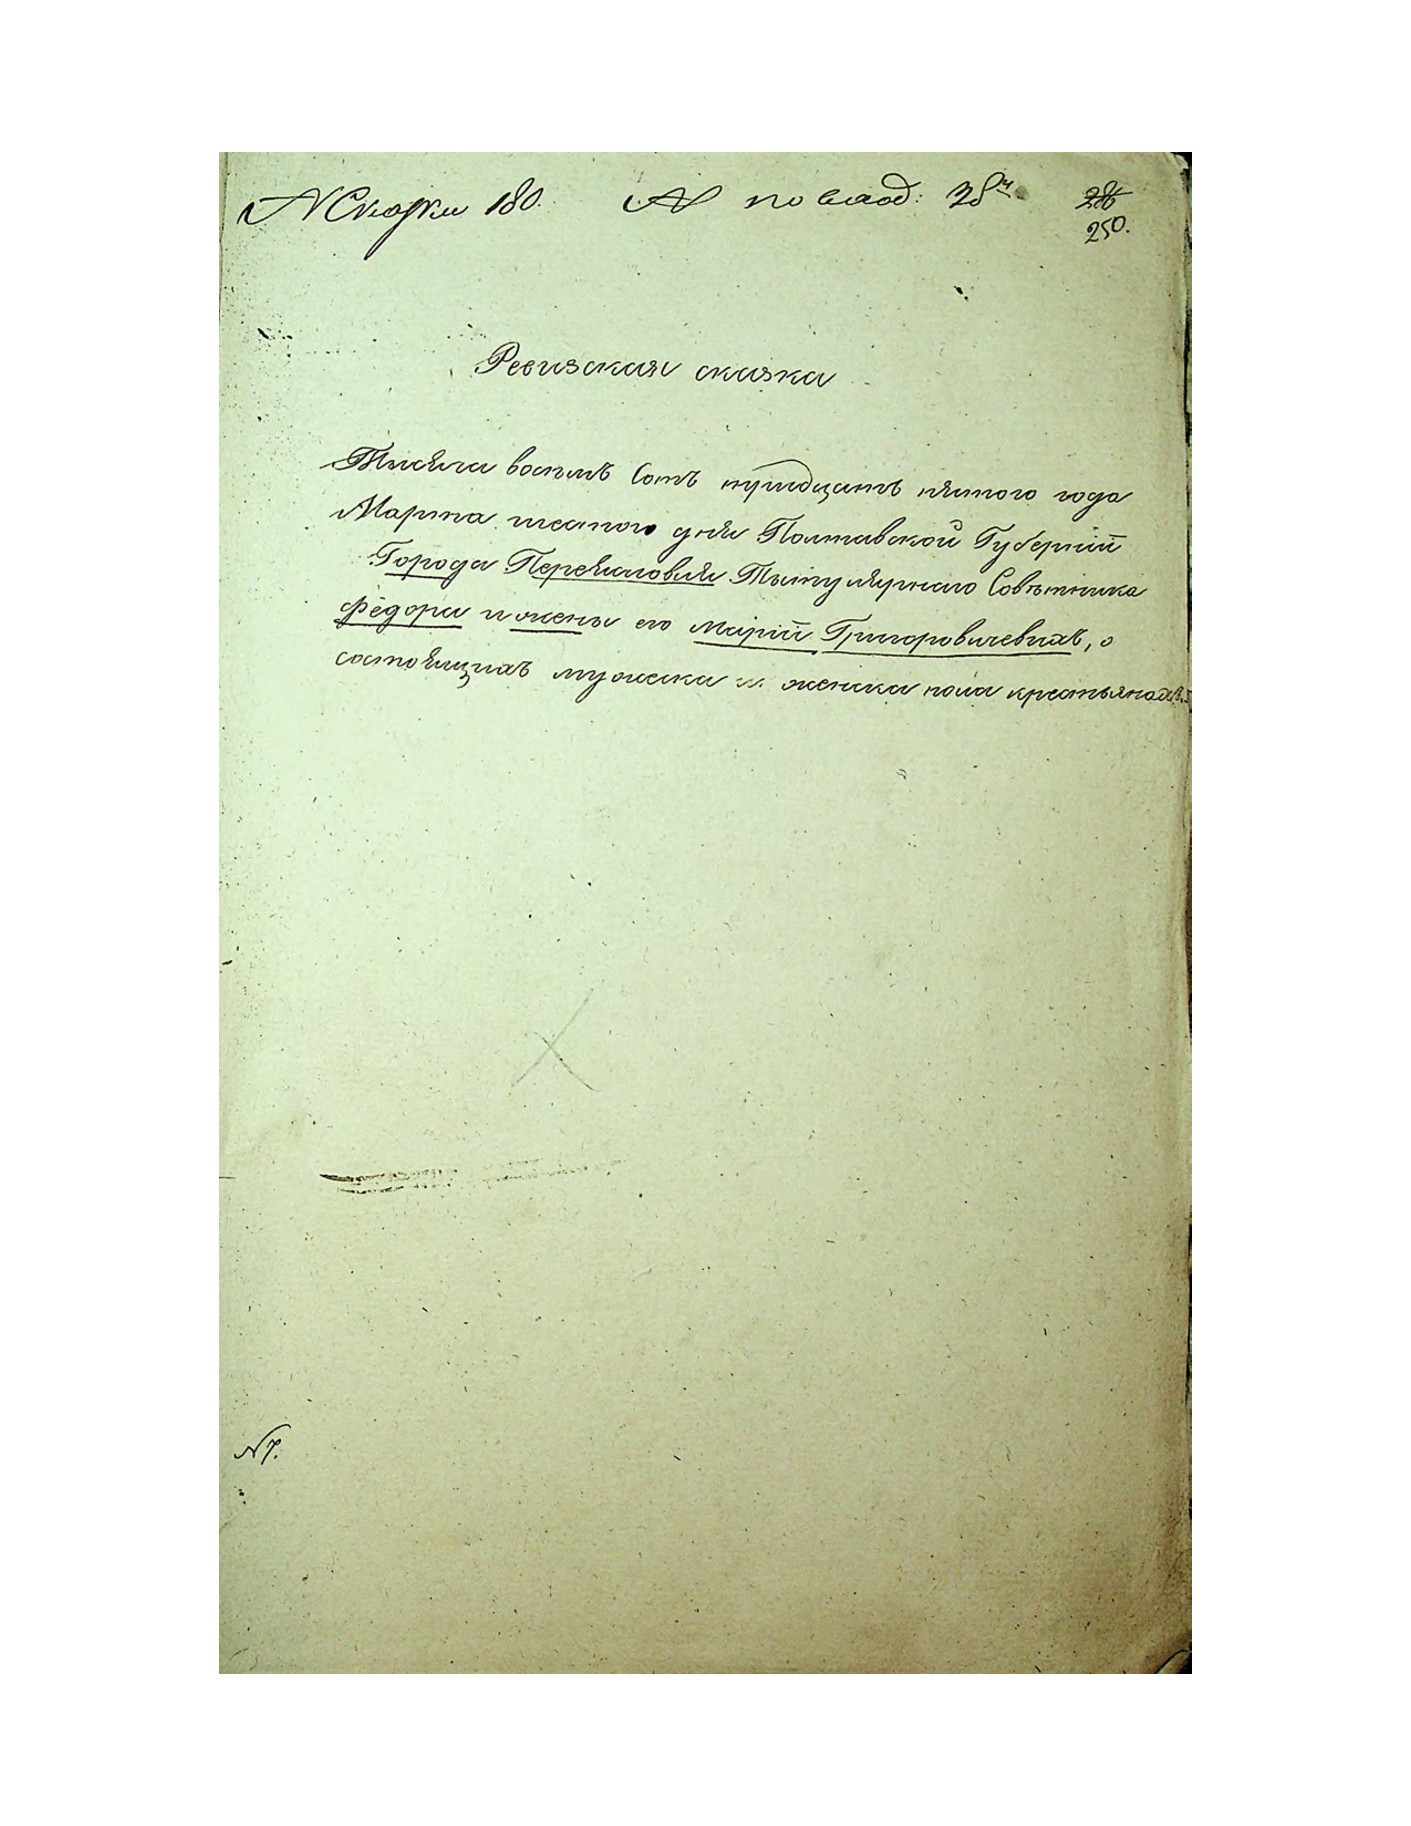 № Сказки 180. № по влад: 38й 286
250.
Ревизская сказка
Тысяча восемь Сотъ тридцать пятого года
Марта шестого дня Полтавской Губерніи
Города Переяславля Титулярнаго Совѣтника
Федора и жены его Маріи Григоровичевыхъ, о
состоящихъ мужеска и женска пола крестьянахъ.
N 7.